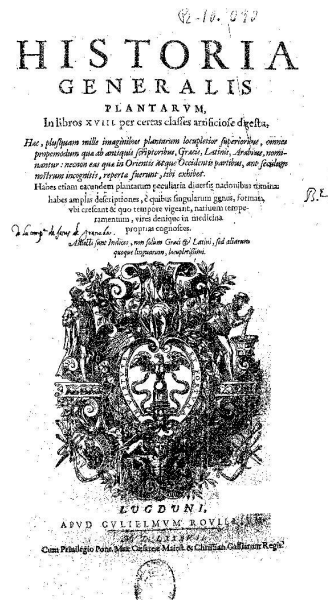 HISTORIA
GENERALIS
PLANTARVM,
In libros XVIII per certas classes artificiose digesta,
Haec, plusquam mille imaginibus plantarum locupletior superioribus, omnes
propemodum quae ab antiquis scriptoribus, Graecis, Latinis, Arabibus, nomi-
nantur: necnon eas quae in Orientis atque Occidentis partibus, ante seculum
nostrum incognitis, reperta fuerunt, tibi exhibet.
Habes etiam earundem plantarum peculiaria diuersis nationibus nomina:
habes amplas descriptiones, è quibus singularum genus, formam,
vbi crescant & quo tempore vigeant, natiuum tempe-
ramentum, vires denique in medicina
proprias cognosces.
Adiecti sunt Indices, non solùm Graeci & Latini, sed aliarum
quoque linguarum, locupletissimi.
LVGDVNI,
APVD GVLIELMVM
Cum Priuilegio Pont. Max. Caesareae Maiest. & Christian. Galliarum Regis.
B.E